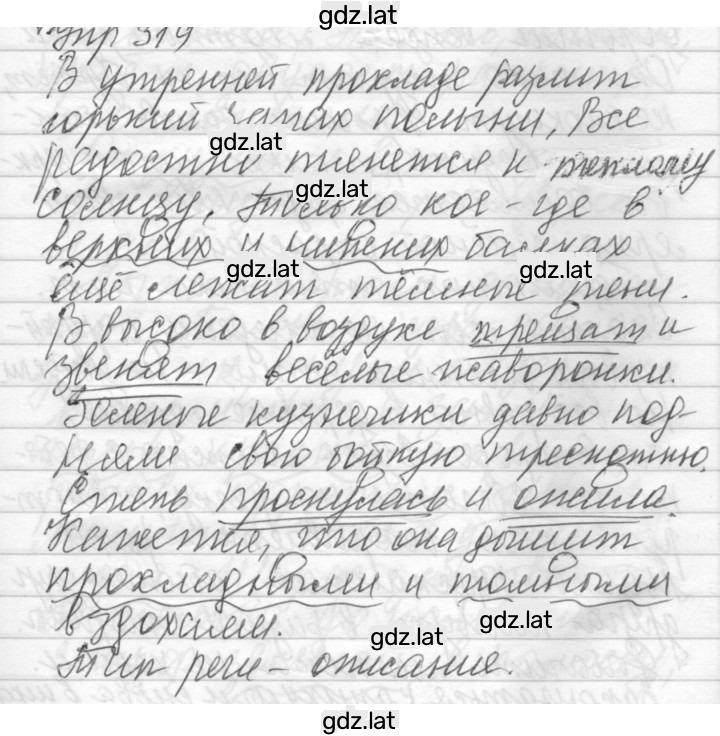 gdz.lat
Упр 319
В утренней прохладе разлит
горький запах полыни, Все
gdz.lat
радостно тянется к теплому
gdz.lat
солнцу, только кое-где в
верхних и нижних балках
gdz.lat gdz.lat
ещё лежат тёмные тени.
В высоко в воздухе трещат и
звенят весёлые жаворонки.
Зеленые кузнечики давно под-
няли свою бойкую трескотню.
Степь проснулась и ожила.
Кажется, что она дышит
прохладными и томными
gdz.lat
вздохами.
gdz.lat
Тип речи - описание.
gdz.lat